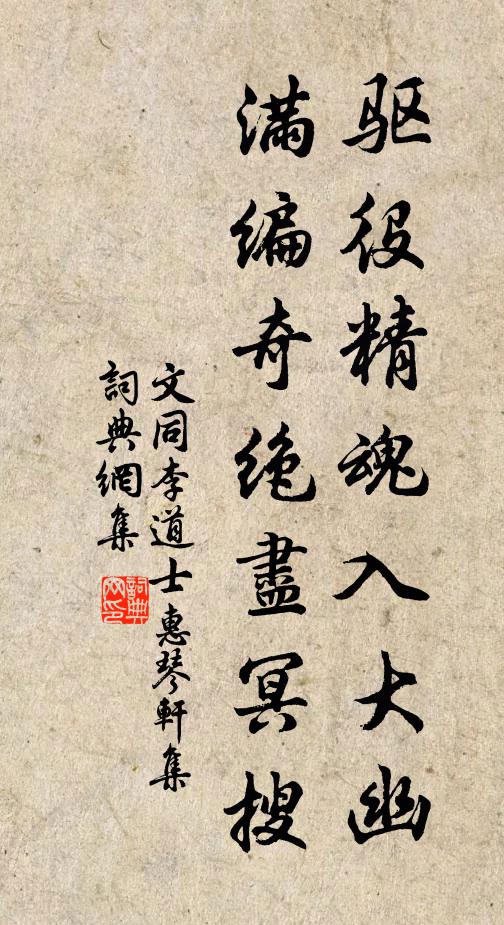 驱役精魂入大幽
满编奇绝盡冥搜
文同李道士惠琴軒集
詞典網集
詞典网印